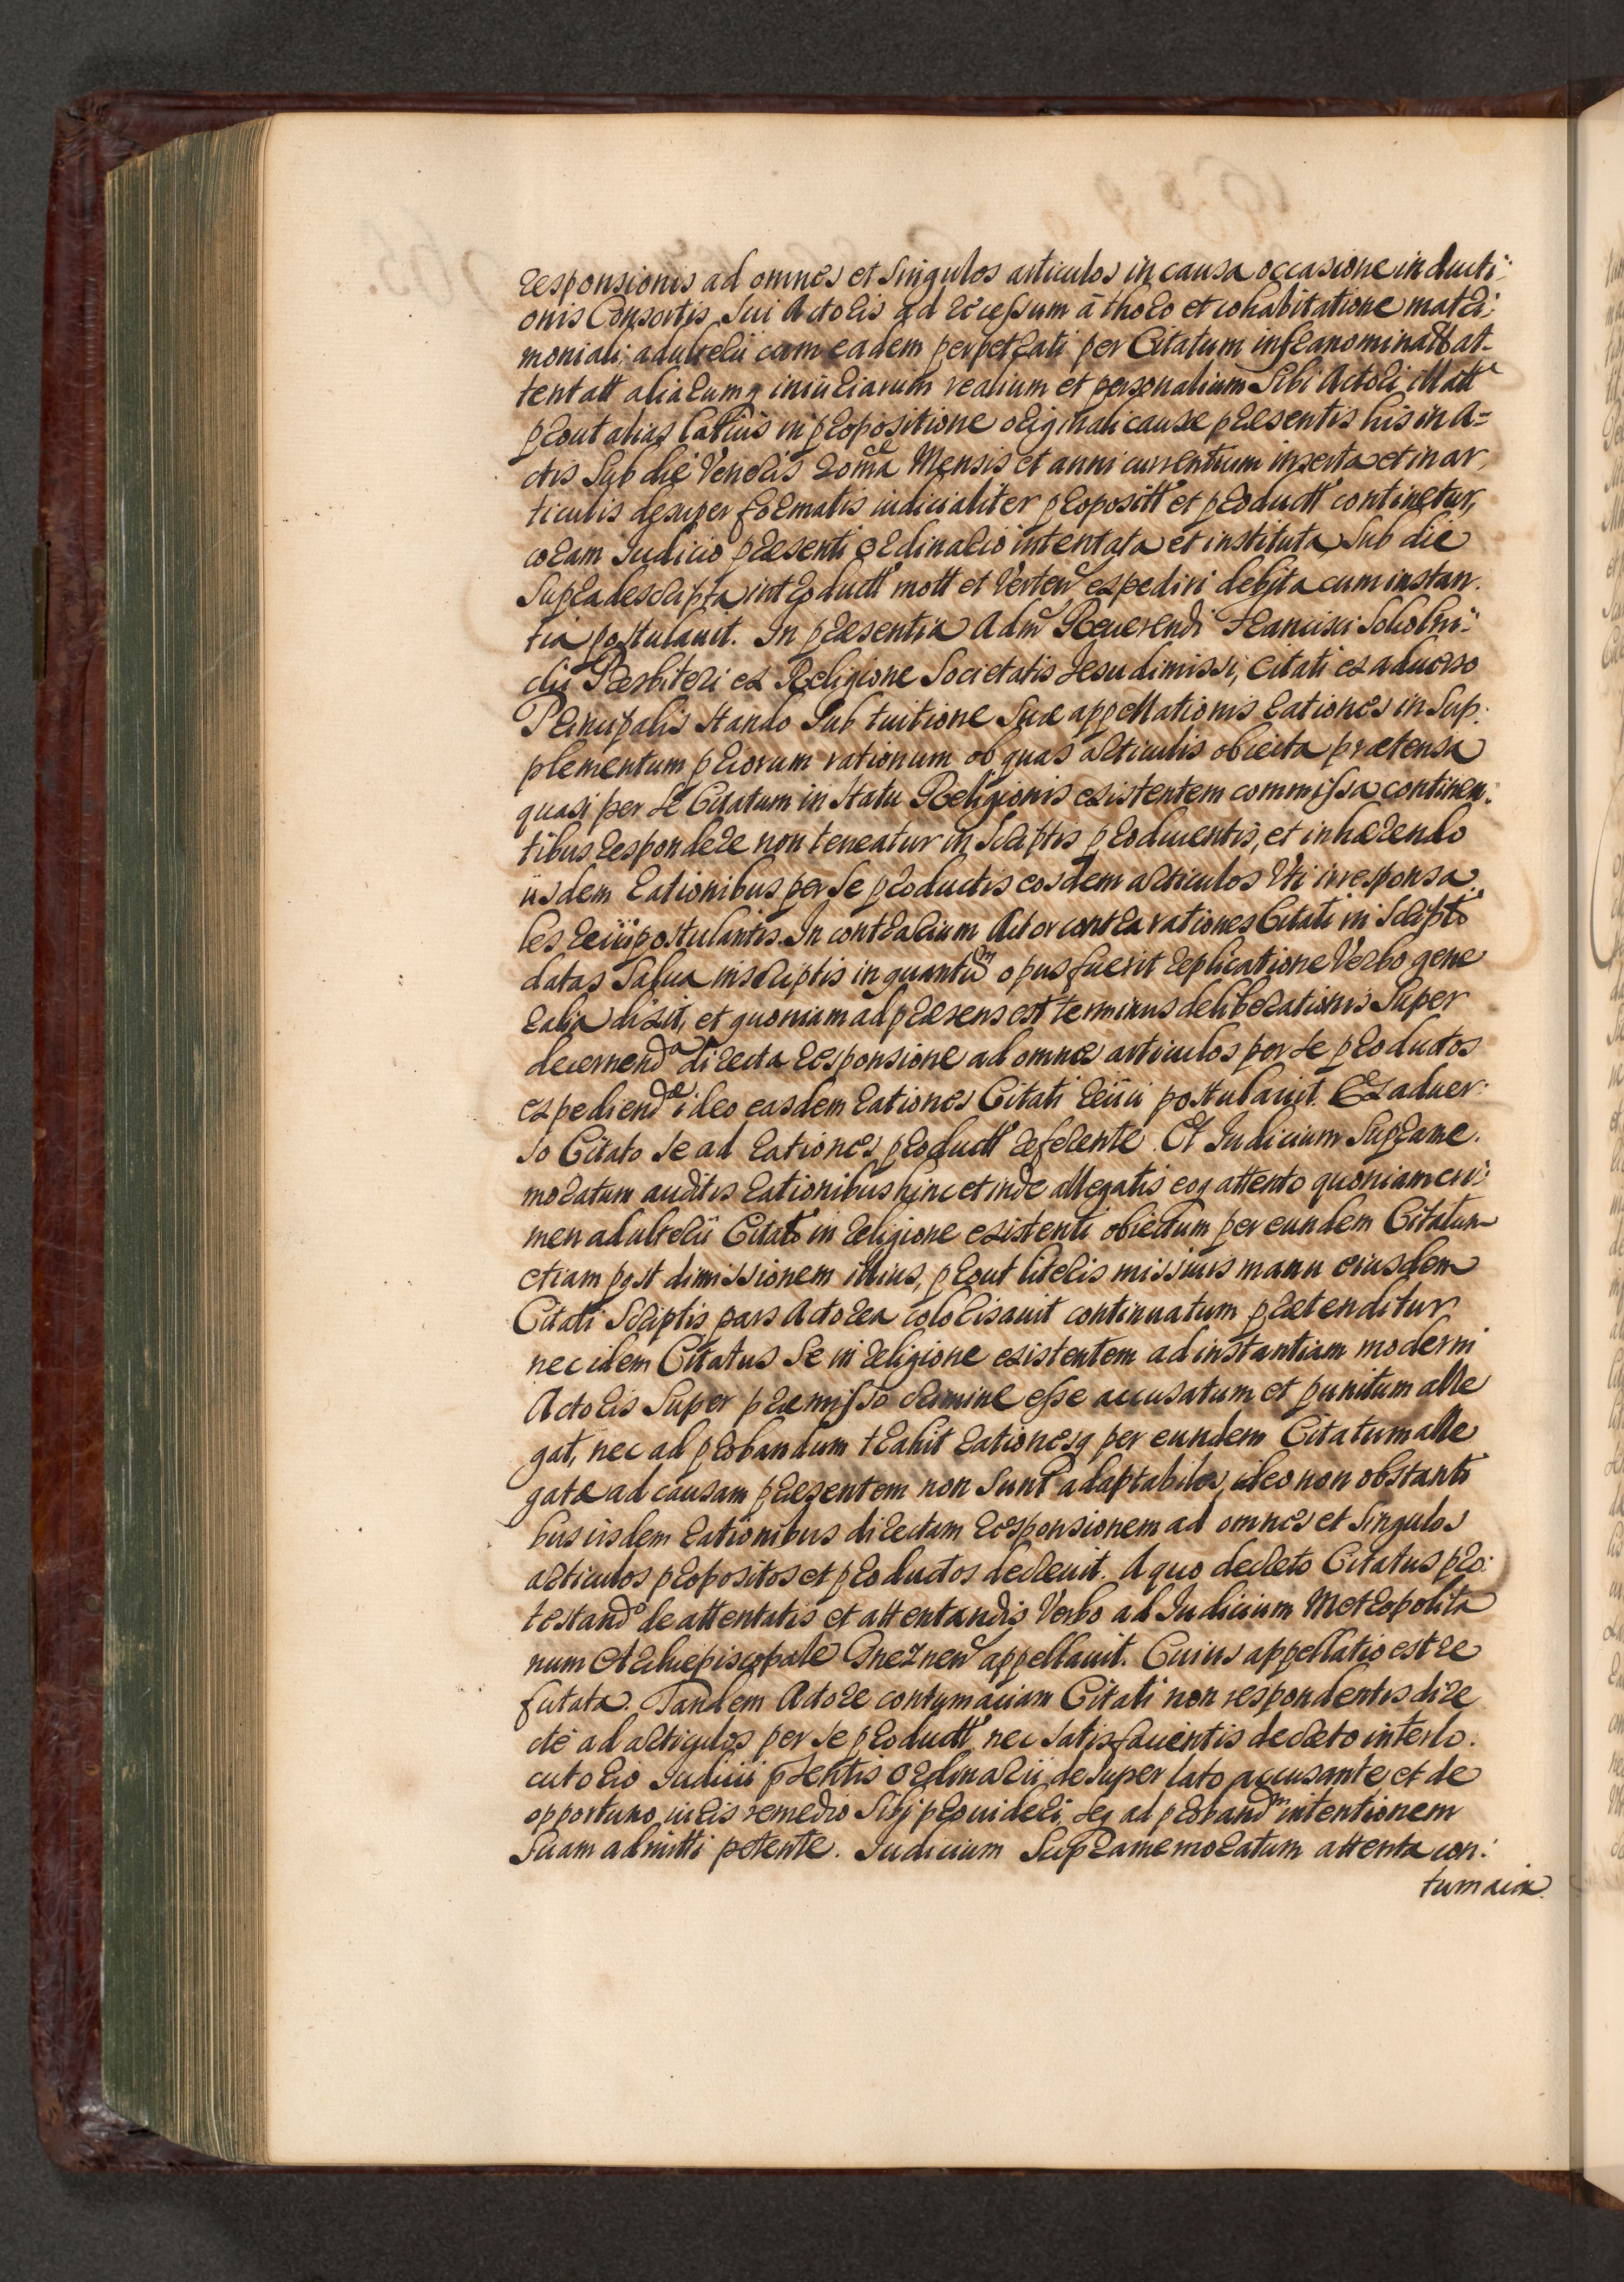 responsionis ad omnes et singulos articulos in causa occasione inducti:
onis Consortis sui Actoris ad recessum à thoro et cohabitatione matri:
moniali; adulterii cum eadem perpetrati per Citatum infranominatt at-
tentatt aliarumq iniuriarum realium et personalium sibi Actori illatt
prout alias latius in propositione originali cause presentis his in A=
ctis sub die Veneris Mensis et anni currentium inserta et in ar,
ticulis desuper formatis iudicialiter propositt et productt continetur,
coram Iudicio præsenti ordinario intentata et instituta, sub die
supradescripta introductt mott et Verten expediri debita cum instan:
tia postulauit. In præsentia Adm Reuerendi Francisci
Præsbiteri ex Religione Societatis Jesu dimissi, Citati ex aduerso
Principalis stando sub tuitione suæ appellationis rationes in sup:
plementum priorum rationum ob quas articulis obiecta prætensa
quasi per se Citatum in statu Religionis existentem commissa continen:
tibus respondere non teneatur in scriptis producentis, et inhærendo
iisdem rationibus per se productis eosdem articulos Vti irresponsa:
les reiici postulantis. In contrarium Actor contra rationes Citati in scripto
datas salua in scriptis in quantum opus fuerit replicatione Verbo gene
ralia dixit, et quoniam ad præsens est terminus deliberationis super
decernenda directa responsione ad omnes articulos per se productos
expediendæ ideo easdem rationes Citati reiici postulauit. Ex aduer:
so Citato se ad rationes productt referente. Et Iudicium suprame:
moratum auditis rationibus hinc et inde allegatis eoq attento quoniam cri:
men adulterii Citato in religione existenti obiectum per eundem Citatum
etiam post dimissionem illius, prout literis missiuis manu eiusdem
Citati scriptis pars Actorea colorisauit continuatum prætenditur
nec idem Citatus se in religione existentem ad instantiam moderni
Actoris super præmisso crimine esse accusatum et punitum alle
gat, nec ad probandum trahit rationesq per eundem Citatum alle
gatæ ad causam præsentem non sunt adaptabiles, ideo non obstanti
bus iisdem rationibus directam responsionem ad omnes et singulos
articulos propositos et productos decreuit. A quo decreto Citatus pro:
testando de attentatis et attentandis Verbo ad Iudicium Metropolita
num Archiepiscopale Gneznen appellauit. Cuius appellatio est re
futata. Tandem Actore contumaciam Citati non respondentis dire
cte ad articulos per se productt nec satisfacientis decreto interlo:
cutorio Iudicii pñtis Ordinarii desuper lato accusante et de
opportuno iuris remedio sibj prouideri, seq ad proband intentionem
suam admitti petente. Iudicium Supramemoratum attenta con:
tumacia